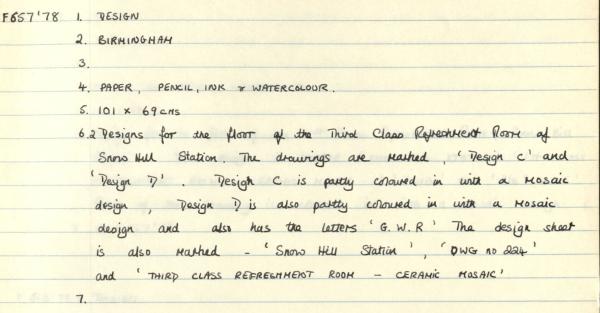 F657'78 1. DESIGN
2. BIRMINGHAM
3.
4. PAPER, PENCIL, INK & WATERCOLOUR.
5. 101 x 69 cms
6. 2 Designs for the floor of the Third Class Refreshment Room of
Snow Hill Station. The drawings are marked, 'Design C' and
'Design D'. Design C is partly coloured in with a mosaic
design, Design D is also partly coloured in with a mosaic
design and also has the letters 'G.W.R' The design sheet
is also marked - 'Snow Hill Station', 'DWG no 224'
and 'THIRD CLASS REFRESHMENT ROOM - CERAMIC MOSAIC'
7.